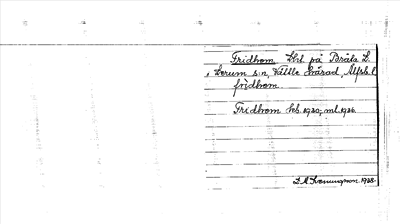 Fridhem Lht. på Bråta L.
i Lerum s:n, Vättle härad, Älfsb. l.
fridhem
Fridhem hb. 1930, ml. 1936.
1938